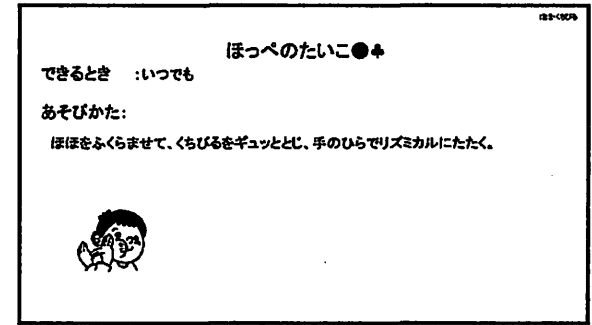 ほお・くちびる
ほっぺのたいこ●♣
できるとき　：いつでも
あそびかた：
ほほをふくらませて、くちびるをギュッととじ、手のひらでリズミカルにたたく。